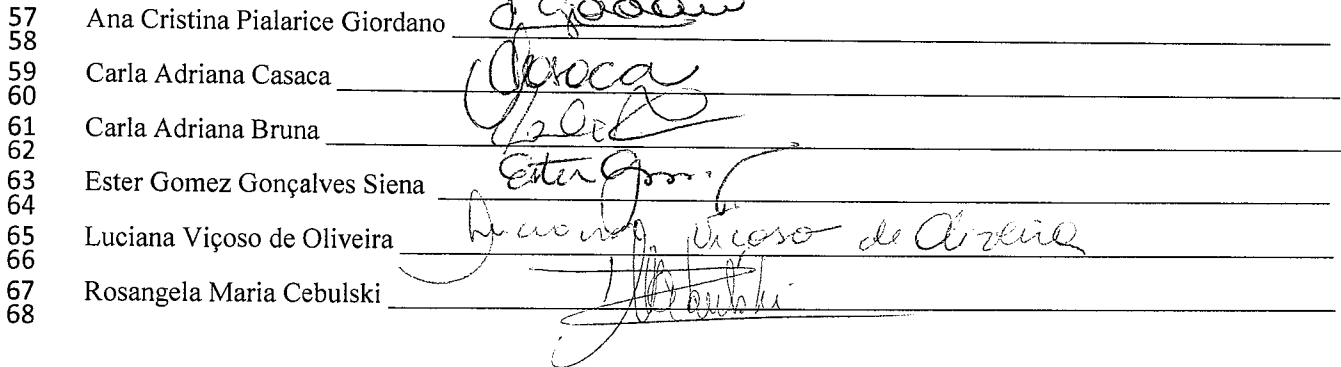 57 Ana Cristina Pialarice Giordano
58
59 Carla Adriana Casaca Casaca
60
61 Carla Adriana Bruna
62
63 Ester Gomez Gonçalves Siena Ester
64
65 Luciana Viçoso de Oliveira Luciana Viçoso de Oliveira
66
67 Rosangela Maria Cebulski
68